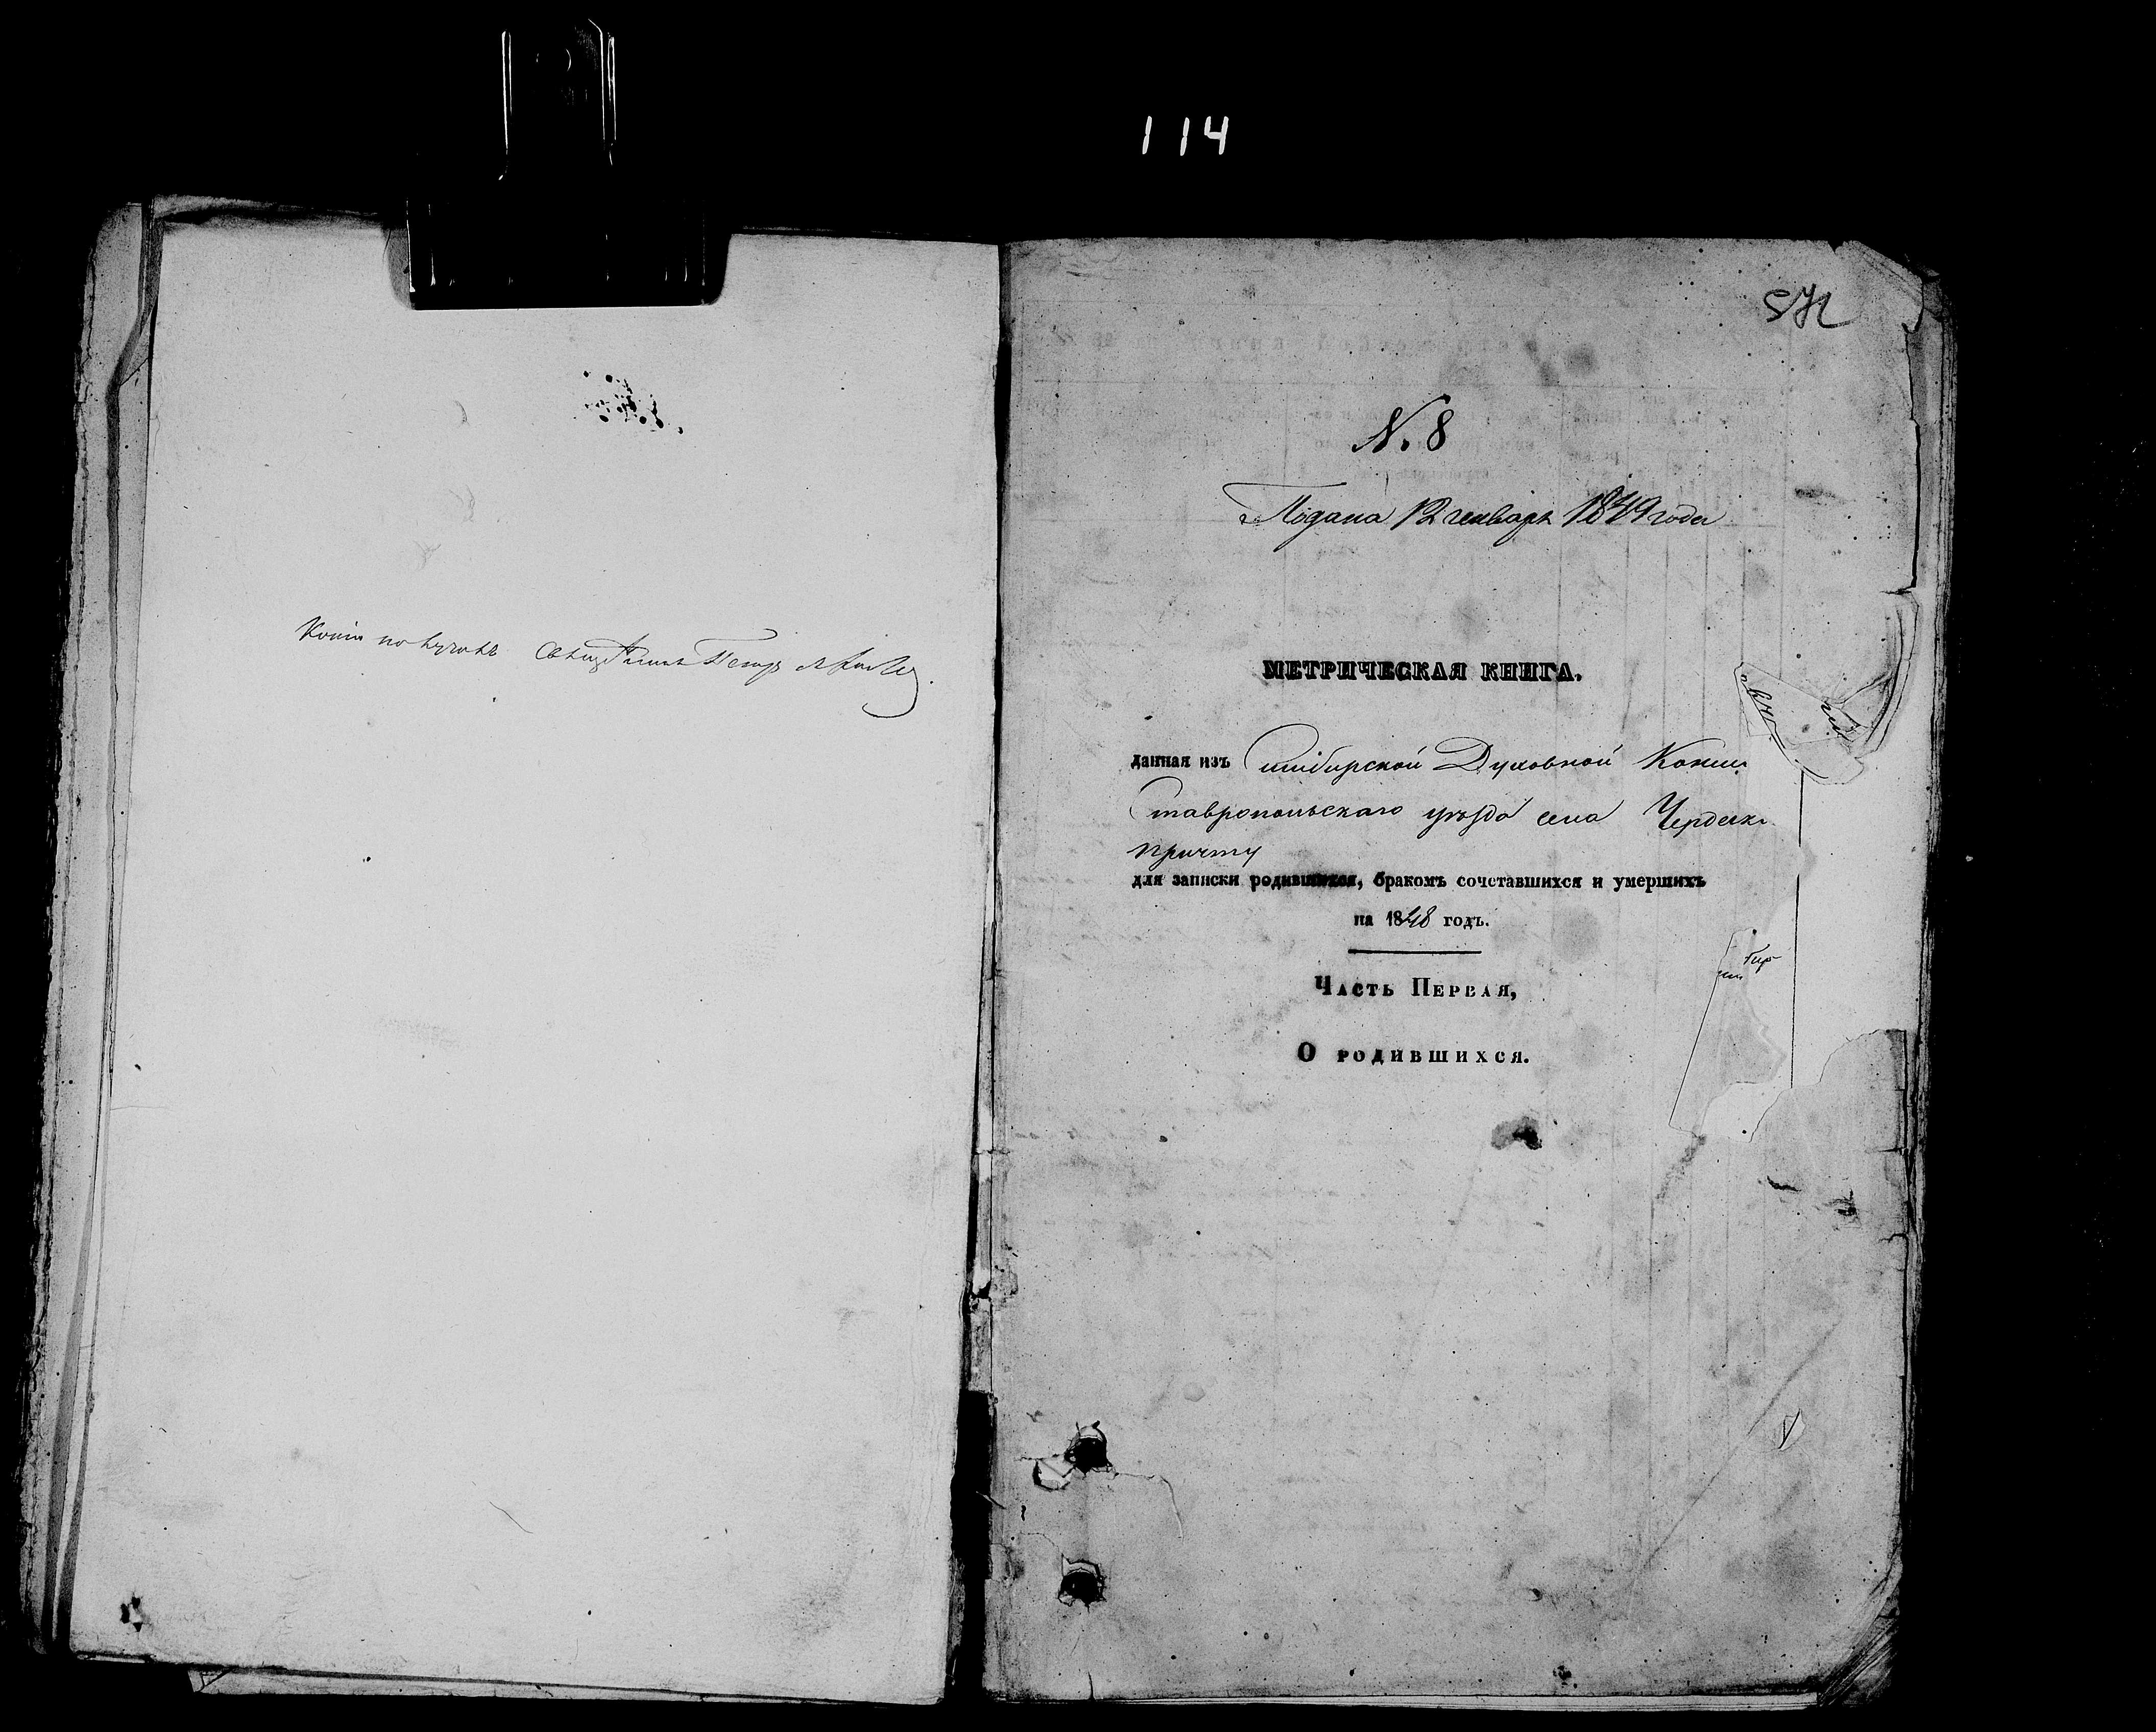 114
Копiю получилъ Священникъ Петръ
571
N. 8
Подана 12 генваря 1849 года
МЕТРИЧЕСКАЯ КНИГА.
данная изъ Симбирской Духовной Конси
Ставропольскаго уѣзда села Чердакъ
причту
для записки родившихся, бракомъ сочетавшихся и умершихъ
на 1848 годъ.
Часть Первая,
О родившихся.